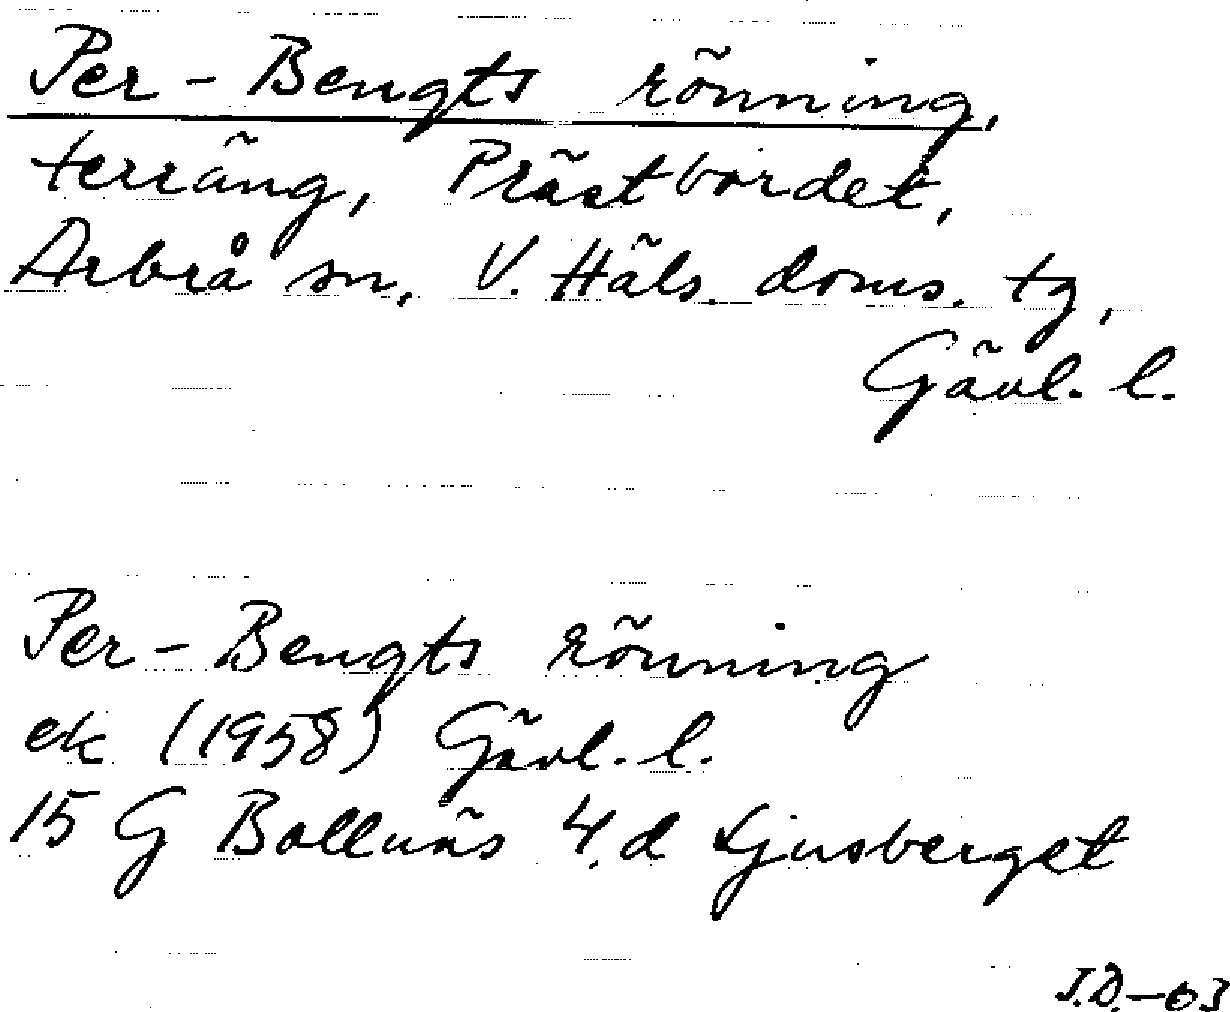 Per-Bengts rönning,
terräng, Prästbordet,
Arbrå sn, V. Häls. doms. tg,
Gävl. l.
Per-Bengts rönning
ek (1958) Gävl. l.
15 G Bollnäs 4 d Ljusberget
J.D.-63